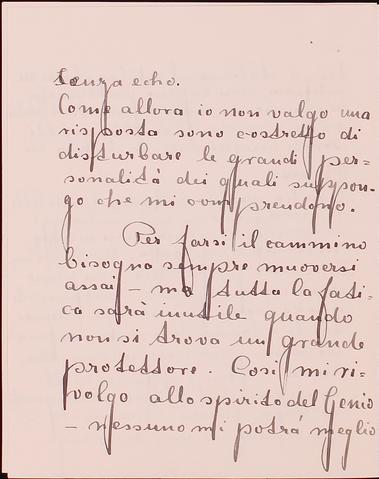 Senza echo.
Come allora io non valgo una
risposta sono costretto di
disturbare le grandi per-
sonalità dei quali suppon-
go che mi comprendono.
Per farsi il cammino
bisogna sempre muoversi
assai - ma tutta la fati-
ca sarà inutile quando
non si trova un grande
protettore. Così mi ri-
volgo allo spirito del Genio
- nessuno mi potrà meglio